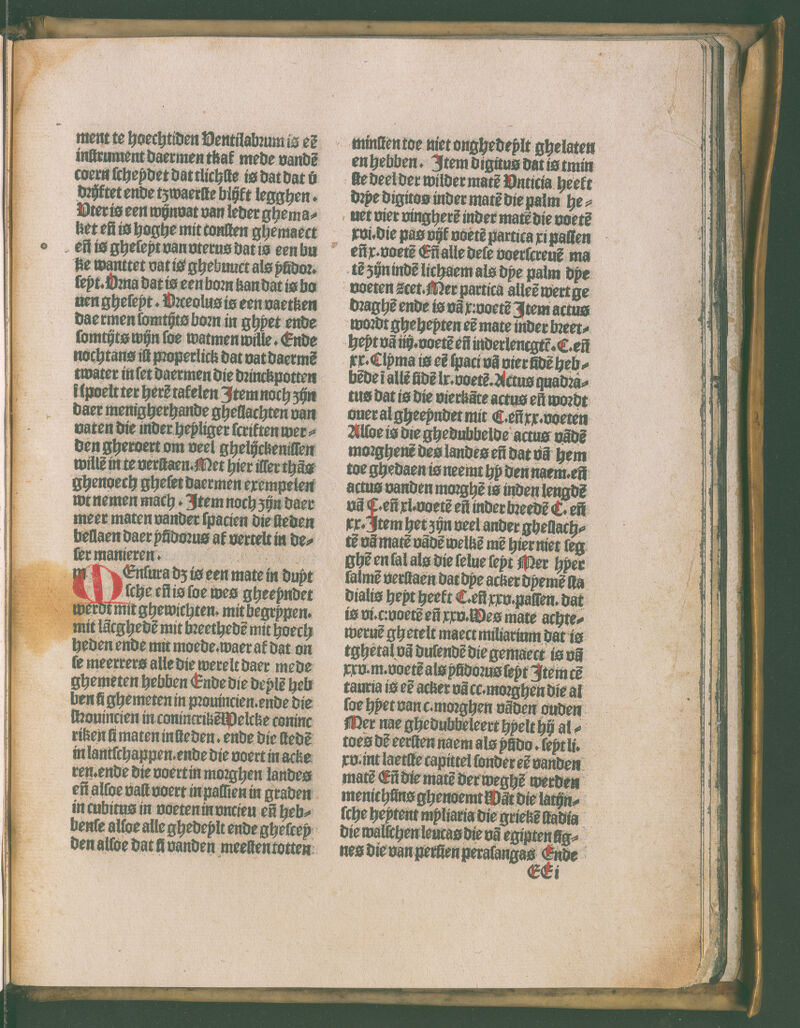 ment te hoechtiden Ventilabrum is eē
instrument daermen tkaf mede vandē
coern scheydet dat tlichste is dat dat v̄
drÿftet ende tzwaerste blÿft legghen.
Vter is een wÿnvat van leder ghema⸗
ket eñ is hoghe mit consten ghemaect
eñ is gheseyt van uterus dat is een bu
ke wanttet vat is ghebuuct als ysidor.
seyt. Vrna dat is een born kan dat is bo
uen gheseyt. Vrceolus is een vaetken
daermen somtÿts born in ghyet ende
somtÿts wÿn soe watmen wille. Ende
nochtans ist properlick dat vat daermē
twater in set daermen die drinckpotten
ī spoelt ter herē tafelen Item noch zÿn
daer menigherhande gheslachten van
vaten die inder heyliger scriften wer⸗
den gheroert om veel ghelÿckenissen
willē in te verstaen. Met hier isser thās
ghenoech gheset daermen exempelen
wt nemen mach. Item noch zÿn daer
meer maten vander spacien die steden
beslaen daer ysidorus af vertelt in de⸗
ser manieren.
MEnsura dꝫ is een mate in duyt
sche eñ is soe wes gheeyndet
werdt mit ghewichten. mit begrypen.
mit lācghedē mit breethedē mit hoech
heden ende mit moede. waer af dat on
se meerrers alle die werelt daer mede
ghemeten hebben Ende die deylē heb
ben si ghemeten in prouincien. ende die
Prouincien in conincrikē Welcke coninc
riken si maten in steden. ende die stedē
in lantschappen. ende die voert in acke
ren. ende die voert in morghen landes
eñ alsoe vast voert in passien in graden
in cubitus in voeten in vncieu eñ heb⸗
bense alsoe alle ghedeylt ende ghescey
den alsoe dat si vanden meesten totten
minsten toe niet onghedeylt ghelaten
en hebben. Item digitus dat is tmin
ste deel der wilder matē Vnticia heeft
drye digitos inder matē die palm he⸗
uet vier vingherē inder matē die voetē
xvi. die pas vÿf voetē partica xi passen
eñ x. voetē Eñ alle dese voerscreuē ma
tē zÿn indē lichaem als dye palm dye
voeten ꝛcet. Mer partica alleē wert ge
draghē ende is vā x: voetē Item actus
wordt gheheyten eē mate inder breet⸗
heyt vā iiÿ. voetē eñ inder lencgtē. C. eñ
xx. Clyma is eē spaci vā vier sidē heb⸗
bēde ī allē sidē lx. voetē. Actus quadra⸗
tus dat is die vierkāte actus eñ wordt
ouer al gheeyndet mit C. eñ xx. voeten
Alsoe is die ghedubbelde actus vādē
morghenē des landes eñ dat vā hem
toe ghedaen is neemt hy den naem. eñ
actus vanden morghē is inden lengdē
vā C. eñ xl. voetē eñ inder breedē C. eñ
xx. Item het zÿn veel ander gheslach⸗
tē vā matē vādē welkē mē hier niet seg
ghē en sal als die selue seyt Mer hyer
salmē verstaen dat dye acker dyemē sta
dialis heyt heeft C. eñ xxv. passen. dat
is vi. c: voetē eñ xxv. Wes mate achte⸗
weruē ghetelt maect miliarium dat is
tghetal vā dusendē die gemaect is vā
xxv. m. voetē als ysidorus seyt Item cē
tauria is eē acker vā cc. morghen die al
soe hyet van c. morghen vāden ouden
Mer nae ghedubbeleert hyelt hÿ al⸗
toes dē eersten naem als ysido. seyt li.
xv. int laetste capittel sonder eē vanden
matē Eñ die matē der weghē werden
menichsins ghenoemt Wāt die latÿn⸗
sche heytent myliaria die griekē stadia
die walschen leucas die vā egipten sig⸗
nes die van persien perasangas Ende
EE i